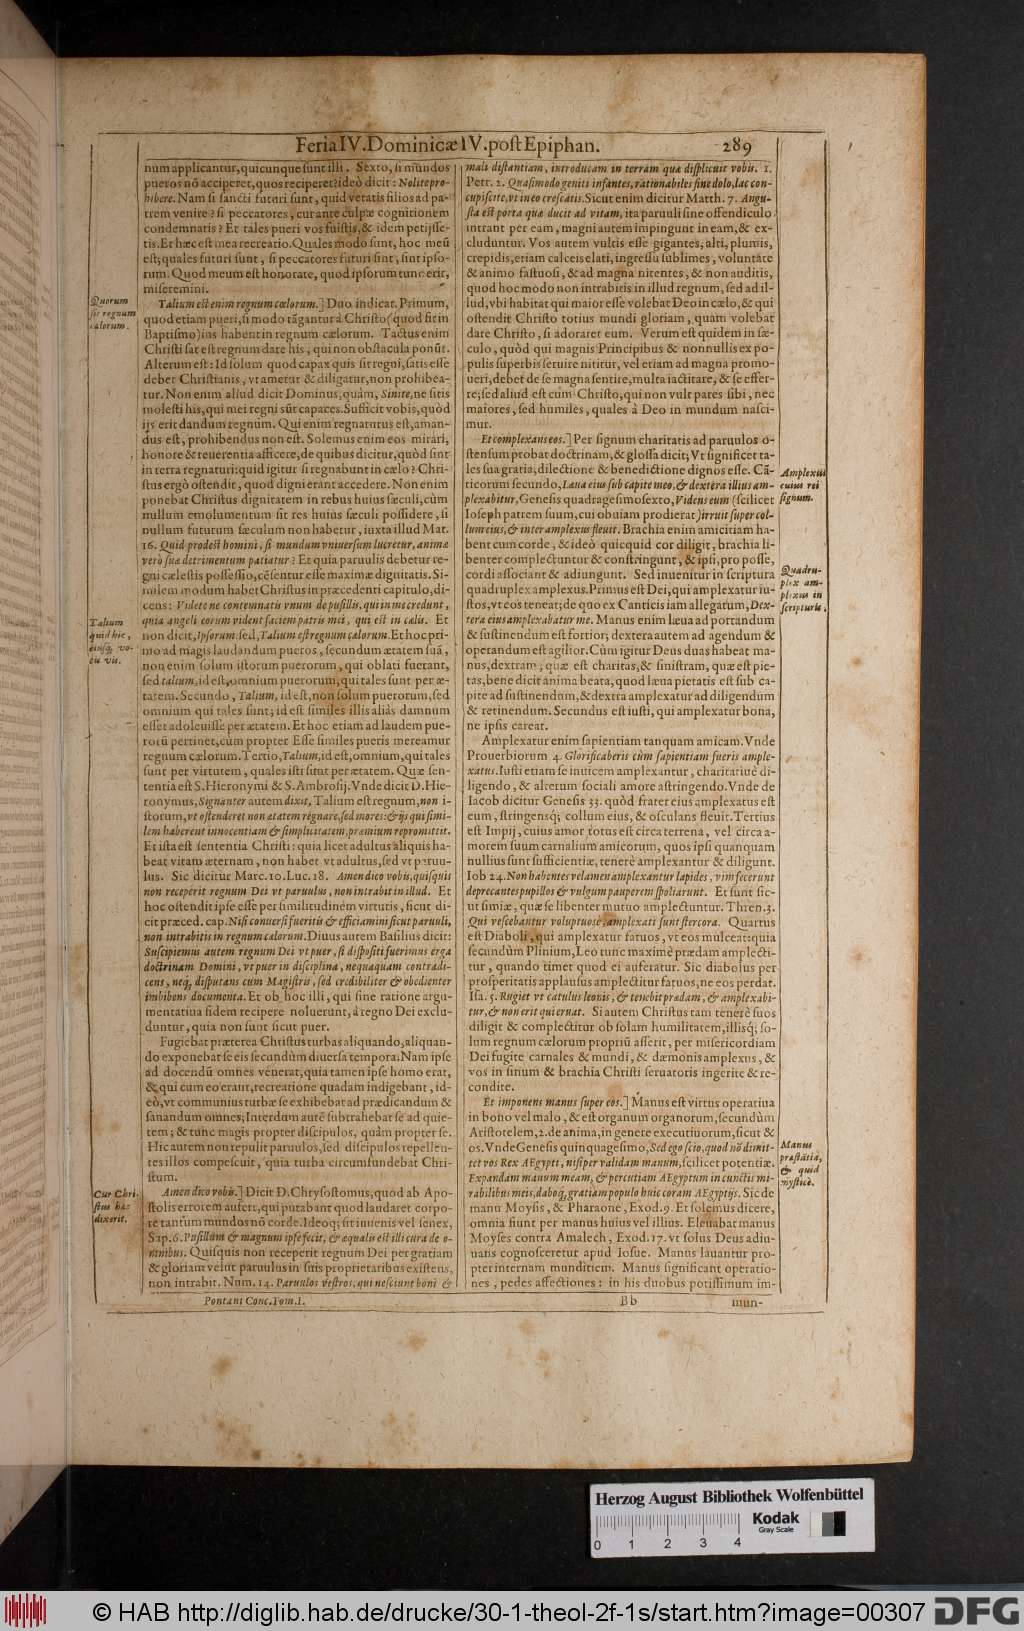 Feria IV. Dominicæ IV. post Epiphan. 289
num applicantur, quicunque sunt illi. Sexto, si mūndos
pueros nō acciperet, quos reciperet? ideò dicit: Nolite pro-
hibere. Nam si sancti futuri sunt, quid vetatis filios ad pa-
trem venire? si peccatores, cur ante culpæ cognitionem
condemnatis? Et tales pueri vos fuistis, & idem petijsse-
tis. Et hæc est mea recreatio. Quales modo sint, hoc meū
est; quales futuri sunt, si peccatores futuri sint, sint ipso-
rum. Quod meum est honorate, quod ipsorum tunc erit,
miseremini.
Talium est enim regnum cœlorum.] Duo indicat. Primum,
quod etiam pueri, si modo tāgantur à Christo (quod fit in
Baptismo) ius habent in regnum cælorum. Tactus enim
Christi sat est regnum dare his, qui non obstacula ponūt.
Alterum est: Id solum quod capax quis sit regni, satis esse
debet Christianis, vt ametur & diligatur, non prohibea-
tur. Non enim aliud dicit Dominus, quàm, Sinite, ne sitis
molesti his, qui mei regni sūt capaces. Sufficit vobis, quòd
ijs erit dandum regnum. Qui enim regnaturus est, aman-
dus est, prohibendus non est. Solemus enim eos mirari,
honore & reuerentia afficere, de quibus dicitur, quòd sint
in terra regnaturi: quid igitur si regnabunt in cælo? Chri-
stus ergò ostendit, quod digni erant accedere. Non enim
ponebat Christus dignitatem in rebus huius sæculi, cùm
nullum emolumentum sit res huius sæculi possidere, si
nullum futurum sæculum non habetur, iuxta illud Mat.
16. Quid prodest homini, si mundum vniuersum lucretur, animæ
verò suæ detrimentum patiatur? Et quia paruulis debetur re-
gni cælestis possessio, cēsentur esse maximæ dignitatis. Si-
milem modum habet Christus in præcedenti capitulo, di-
cens: Videte ne contemnatis vnum de pusillis, qui in me credunt,
quia angeli eorum vident faciem patris mei, qui est in cœlis. Et
non dicit, Ipsorum: sed, Talium est regnum cælorum. Et hoc pri-
mo ad magis laudandum pueros, secundum ætatem suā,
non enim solum istorum puerorum, qui oblati fuerant,
sed talium, id est, omnium puerorum, qui tales sunt per æ-
tatem. Secundo, Talium, id est, non solum puerorum, sed
omnium qui tales sunt; id est similes illis aliàs damnum
esset adoleuisse per ætatem. Et hoc etiam ad laudem pue-
rorū pertinet, cùm propter Esse similes pueris mereamur
regnum cælorum. Tertio, Talium, id est, omnium, qui tales
sunt per virtutem, quales isti sunt per ætatem. Quæ sen-
tentia est S. Hieronymi & S. Ambrosij. Vnde dicit D. Hie-
ronymus, Signanter autem dixit, Talium est regnum, non i-
storum, vt ostenderet non ætatem regnare, sed mores: & ijs qui simi-
lem haberent innocentiam & simplicitatem, præmium repromittit.
Et ista est sententia Christi: quia licet adultus aliquis ha-
beat vitam æternam, non habet vt adultus, sed vt paruu-
lus. Sic dicitur Marc. 10. Luc. 18. Amen dico vobis, quisquis
non receperit regnum Dei vt paruulus, non intrabit in illud. Et
hoc ostendit ipse esse per similitudinem virtutis, sicut di-
cit præced. cap. Nisi conuersi fueritis & efficiamini sicut paruuli,
non intrabitis in regnum cælorum. Diuus autem Basilius dicit:
Suscipiemus autem regnum Dei vt puer, si dispositi fuerimus erga
doctrinam Domini, vt puer in disciplina, nequaquam contradi-
cens, neq; disputans cum Magistris, sed credibiliter & obedienter
imbibens documenta. Et ob hoc illi, qui sine ratione argu-
mentatiua fidem recipere noluerunt, à regno Dei exclu-
duntur, quia non sunt sicut puer.
Fugiebat præterea Christus turbas aliquando, aliquan-
do exponebat se eis secundùm diuersa tempora. Nam ipse
ad docendū omnes venerat, quia tamen ipse homo erat,
& qui cum eo erant, recreatione quadam indigebant, id-
eò, vt communius turbæ se exhibebat ad prædicandum &
sanandum omnes; Interdum autē subtrahebat se ad quie-
tem; & tunc magis propter discipulos, quàm propter se.
Hic autem non repulit paruulos, sed discipulos repellen-
tes illos compescuit, quia turba circumfundebat Chri-
stum.
Amen dico vobis.] Dicit D. Chrysostomus, quod ab Apo-
stolis errorem aufert, qui putabant quod laudaret corpo-
re tantùm mundos nō corde. Ideoq; sit iuuenis vel senex,
Sap. 6. Pusillum & magnum ipse fecit, & æqualis est illi cura de o-
mnibus. Quisquis non receperit regnum Dei per gratiam
& gloriam velut paruulus in suis proprietaribus existens,
non intrabit. Num. 14. Paruulos vestros, qui nesciunt boni &
Quorum
sit regnum
cælorum.
Talium
quid hic,
Cur Chri-
stus hæc
dixerit.
mali distantiam, introducam in terram quæ displicuit vobis. 1.
Petr. 2. Quasi modo geniti infantes, rationabiles sine dolo, lac con-
cupiscite, vt in eo crescatis. Sicut enim dicitur Matth. 7. Angu-
sta est porta quæ ducit ad vitam, ita paruuli sine offendiculo
intrant per eam, magni autem impingunt in eam, & ex-
cluduntur. Vos autem vultis esse gigantes, alti, plumis,
crepidis, etiam calceis elati, ingressu sublimes, voluntāte
& animo fastuosi, & ad magna nitentes, & non auditis,
quod hoc modo non intrabitis in illud regnum, sed ad il-
lud, vbi habitat qui maior esse volebat Deo in cælo, & qui
ostendit Christo totius mundi gloriam, quàm volebat
dare Christo, si adoraret eum. Verum est quidem in sæ-
culo, quòd qui magnis Principibus & nonnullis ex po-
pulis superbis seruire nititur, vel etiam ad magna promo-
ueri, debet de se magna sentire, multa iactitare, & se effer-
re; sed aliud est cum Christo, qui non vult pares sibi, nec
maiores, sed humiles, quales à Deo in mundum nasci-
mur.
Et complexans eos.] Per signum charitatis ad paruulos o-
stensum probat doctrinam, & glossa dicit; Vt significet ta-
les sua gratia, dilectione & benedictione dignos esse. Cā-
ticorum secundo, Læua eius sub capite meo, & dextera illius am-
plexabitur, Genesis quadragesimo sexto, Videns eum (scilicet
Ioseph patrem suum, cui obuiam prodierat) irruit super col-
lum eius, & inter amplexus fleuit. Brachia enim amicitiam ha-
bent cum corde, & ideò quicquid cor diligit, brachia li-
benter complectuntur & constringunt, & ipsi, pro posse,
cordi associant & adiungunt. Sed inuenitur in scriptura
quadruplex amplexus. Primus est Dei, qui amplexatur iu-
stos, vt eos teneat; de quo ex Canticis iam allegatum, Dex-
tera eius amplexabatur me. Manus enim læua ad portandum
& sustinendum est fortior; dextera autem ad agendum &
operandum est agilior. Cùm igitur Deus duas habeat ma-
nus, dextram, quæ est charitas, & sinistram, quæ est pie-
tas, bene dicit anima beata, quod læua pietatis est sub ca-
pite ad sustinendum, & dextra amplexatur ad diligendum
& retinendum. Secundus est iusti, qui amplexatur bona,
ne ipsis careat.
Amplexatur enim sapientiam tanquam amicam. Vnde
Prouerbiorum 4. Glorificaberis cùm sapientiam fueris ample-
xatus. Iusti etiam se inuicem amplexantur, charitatiuè di-
ligendo, & alterum sociali amore astringendo. Vnde de
Iacob dicitur Genesis 33. quòd frater eius amplexatus est
eum, stringensq; collum eius, & osculans fleuit. Tertius
est Impij, cuius amor totus est circa terrena, vel circa a-
morem suum carnalium amicorum, quos ipsi quanquam
nullius sunt sufficientiæ, tenerè amplexantur & diligunt.
Iob 24. Non habentes velamen amplexantur lapides, vim fecerunt
deprecantes pupillos & vulgum pauperem spoliarunt. Et sunt sic-
ut simiæ, quæ se libenter mutuo amplectuntur. Thren. 3.
Qui vescebantur voluptuosè, amplexati sunt stercora. Quartus
est Diaboli, qui amplexatur fatuos, vt eos mulceat: quia
secundùm Plinium, Leo tunc maximè prædam amplecti-
tur, quando timet quod ei auferatur. Sic diabolus per
prosperitatis applausus amplectitur fatuos, ne eos perdat.
Isa. 5. Rugiet vt catulus leonis, & tenebit prædam, & amplexabi-
tur, & non erit qui eruat. Si autem Christus tam tenerè suos
diligit & complectitur ob solam humilitatem, illisq; so-
lum regnum cælorum propriū asserit, per misericordiam
Dei fugite carnales & mundi, & dæmonis amplexus, &
vos in sinum & brachia Christi seruatoris ingerite & re-
condite.
Et imponens manus super eos.] Manus est virtus operatiua
in bono vel malo, & est organum organorum, secundùm
Aristotelem, 2. de anima, in genere executiuorum, sicut &
os. Vnde Genesis quinquagesimo, Sed ego scio, quod nō dimit-
tet vos Rex AEgypti, nisi per validam manum, scilicet potentiæ.
Expandam manum meam, & percutiam AEgyptum in cunctis mi-
rabilibus meis, daboq; gratiam populo huic coram AEgyptijs. Sic de
manu Moysis, & Pharaone, Exod. 9. Et solemus dicere,
omnia fiunt per manus huius vel illius. Eleuabat manus
Moyses contra Amalech, Exod. 17. vt solus Deus adiu-
uans cognosceretur apud Iosue. Manus lauantur pro-
pter internam munditiem. Manus significant operatio-
nes, pedes affectiones: in his duobus potissimum im-
Amplexus
cuius rei
signum.
Quadru-
plex am-
plexus in
scripturis.
Manus
præstātia,
& quid
mysticè.
Pontani Conc. Tom. I. Bb mun-
Herzog August Bibliothek Wolfenbüttel
Kodak
Gray Scale
0 1 2 3 4
© HAB http://diglib.hab.de/drucke/30-1-theol-2f-1s/start.htm?image=00307 DFG